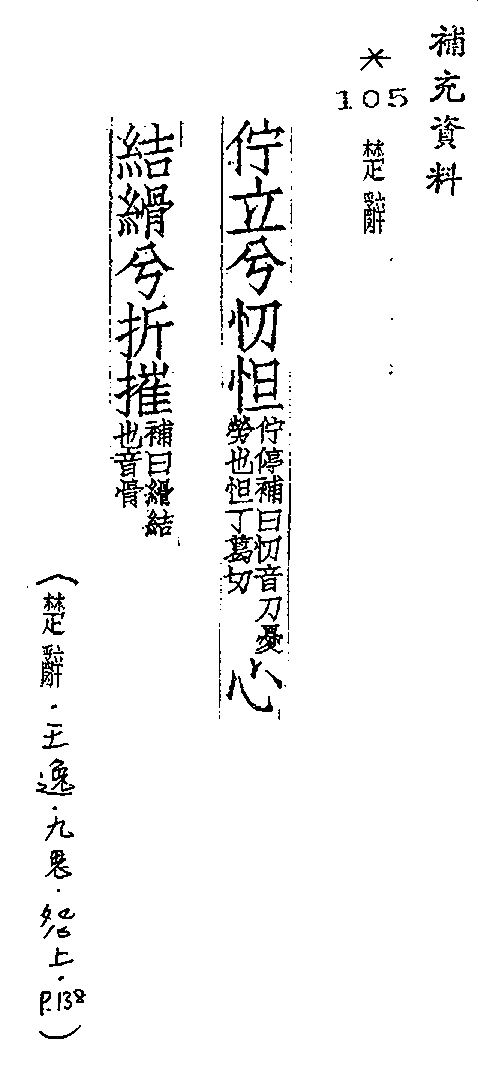 補充資料
*
105 楚辭
佇立兮忉怛佇停補曰忉音刀憂勞也怛丁葛切心
結縎兮折摧補曰縎結也音骨
(楚辭.王逸.九思.怨上.P.138)